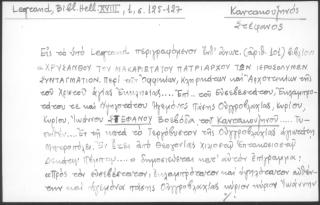 Legrand, Bibl. Hell. XVIII, t. 1. 125-127
Καντακουζηνός
Στέφανος
Εἰς τὸ ὑπὸ Legrand περιγραφόμενον ἐνθ' ἀνωτ. (ἀριθ. 101) βιβλίον
«ΧΡΥΣΑΝΘΟΥ ΤΟΥ ΜΑΚΑΡΙΩΤΑΤΟΥ ΠΑΤΡΙΑΡΧΟΥ ΤΩΝ ΙΕΡΟΣΟΛΥΜΩΝ
ΣΥΝΤΑΓΜΑΤΙΟΝ. Περὶ τῶν Ὀφφικίων, Κληρικάτων καὶ Ἀρχοντικίων τῆς
τοῦ Χριστοῦ ἁγίας Ἐκκλησίας.... Ἐπὶ.. τοῦ Εὐσεβεστάτου, Ἐκλαμπρο-
τάτου τε καὶ Ὑψηλοτάτου Ἡγεμόνος Πάσης Οὐγγροβλαχίας, Κυρίου,
Κυρίου, Ἰωάννου ΣΤΕΦΑΝΟΥ Βοεβόδα τοῦ Καντακουζηνοῦ.... Τυ-
Ἐν τῇ κατὰ τὸ Τεργόβυστον τῆς Οὐγγροβλαχίας ἁγιωτάτῃ
Μητροπόλει. Ἐν ἔτει ἀπὸ Θεογονίας χιλιοστῷ Ἑπτακοσιοστῷ
Δεκάτῳ Πέμπτῳ.... » δημοσιεύεται κατ' αὐτὸν ἐπίγραμμα:
«Πρὸς τὸν εὐσεβέστατον, ἐκλαμπρότατον καὶ ὑψηλότατον αὐθέν-
την καὶ ἡγεμόνα πάσης Οὐγγροβλαχίας κύριον κύριον Ἰωάννην